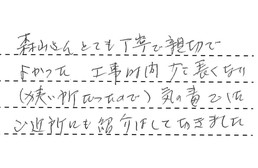 森山さんとても丁寧で親切で
よかった 工事時間 少し長くなり
(狭い所だったので) 気の毒でした
ご近所にも紹介はしておきました